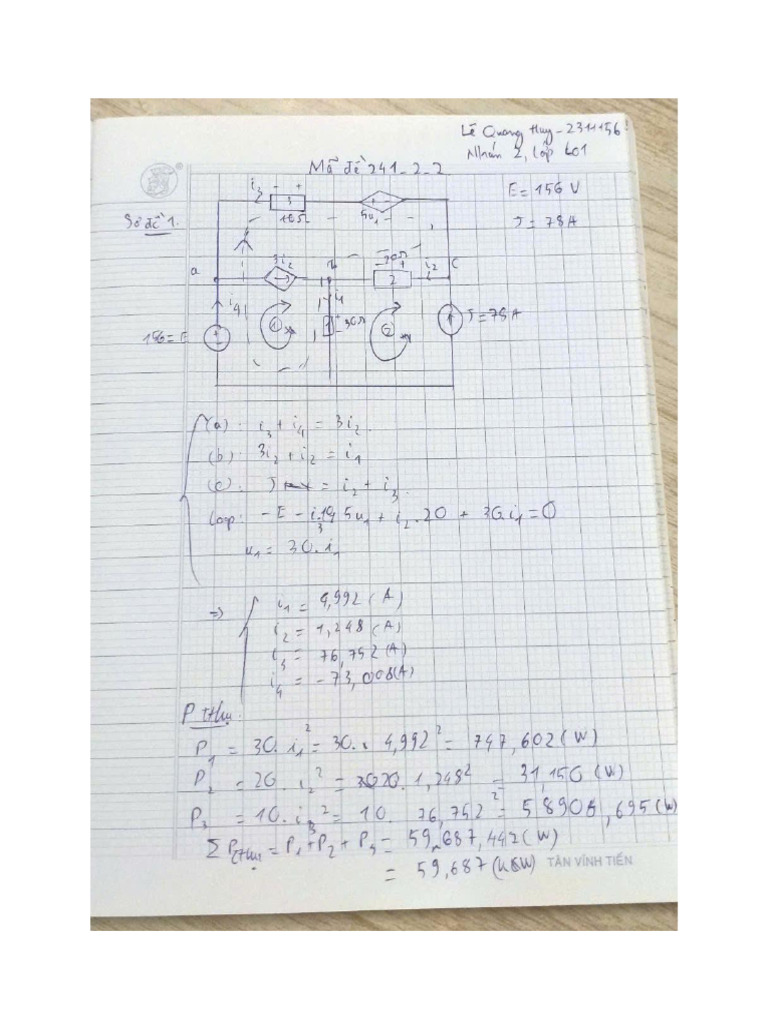 Lê Quang Huy - 2311156
Nhóm 2, lớp L01
Mã đề 241-2-2
E = 156 V
J = 78A
Sơ đề 1.
i3 - + 3 10Ω 5u1
a 3i2 b 20Ω - + 2 i2 C
i4 1 i1 1 30Ω 2 J = 78A
156 = E
(a): i3 + i4 = 3i2
(b): 3i2 + i2 = i1
(c): J = i2 + i3
loop: -E - i3.10 5u1 + i2.20 + 30.i1 = 0
u1 = 30.i1
=> i1 = 4,992 (A)
i2 = 1,248 (A)
i3 = 76,752 (A)
i4 = -73,008 (A)
P thu:
P1 = 30.i1² = 30. 4,992² = 747,602 (W)
P2 = 20. i2² = 20. 1,248² = 31,150 (W)
P3 = 10. i3² = 10. 76,752² = 58908,695 (W)
ΣPthu = P1 + P2 + P3 = 59,687,442 (W)
= 59,687 (kW)
TÂN VĨNH TIẾN